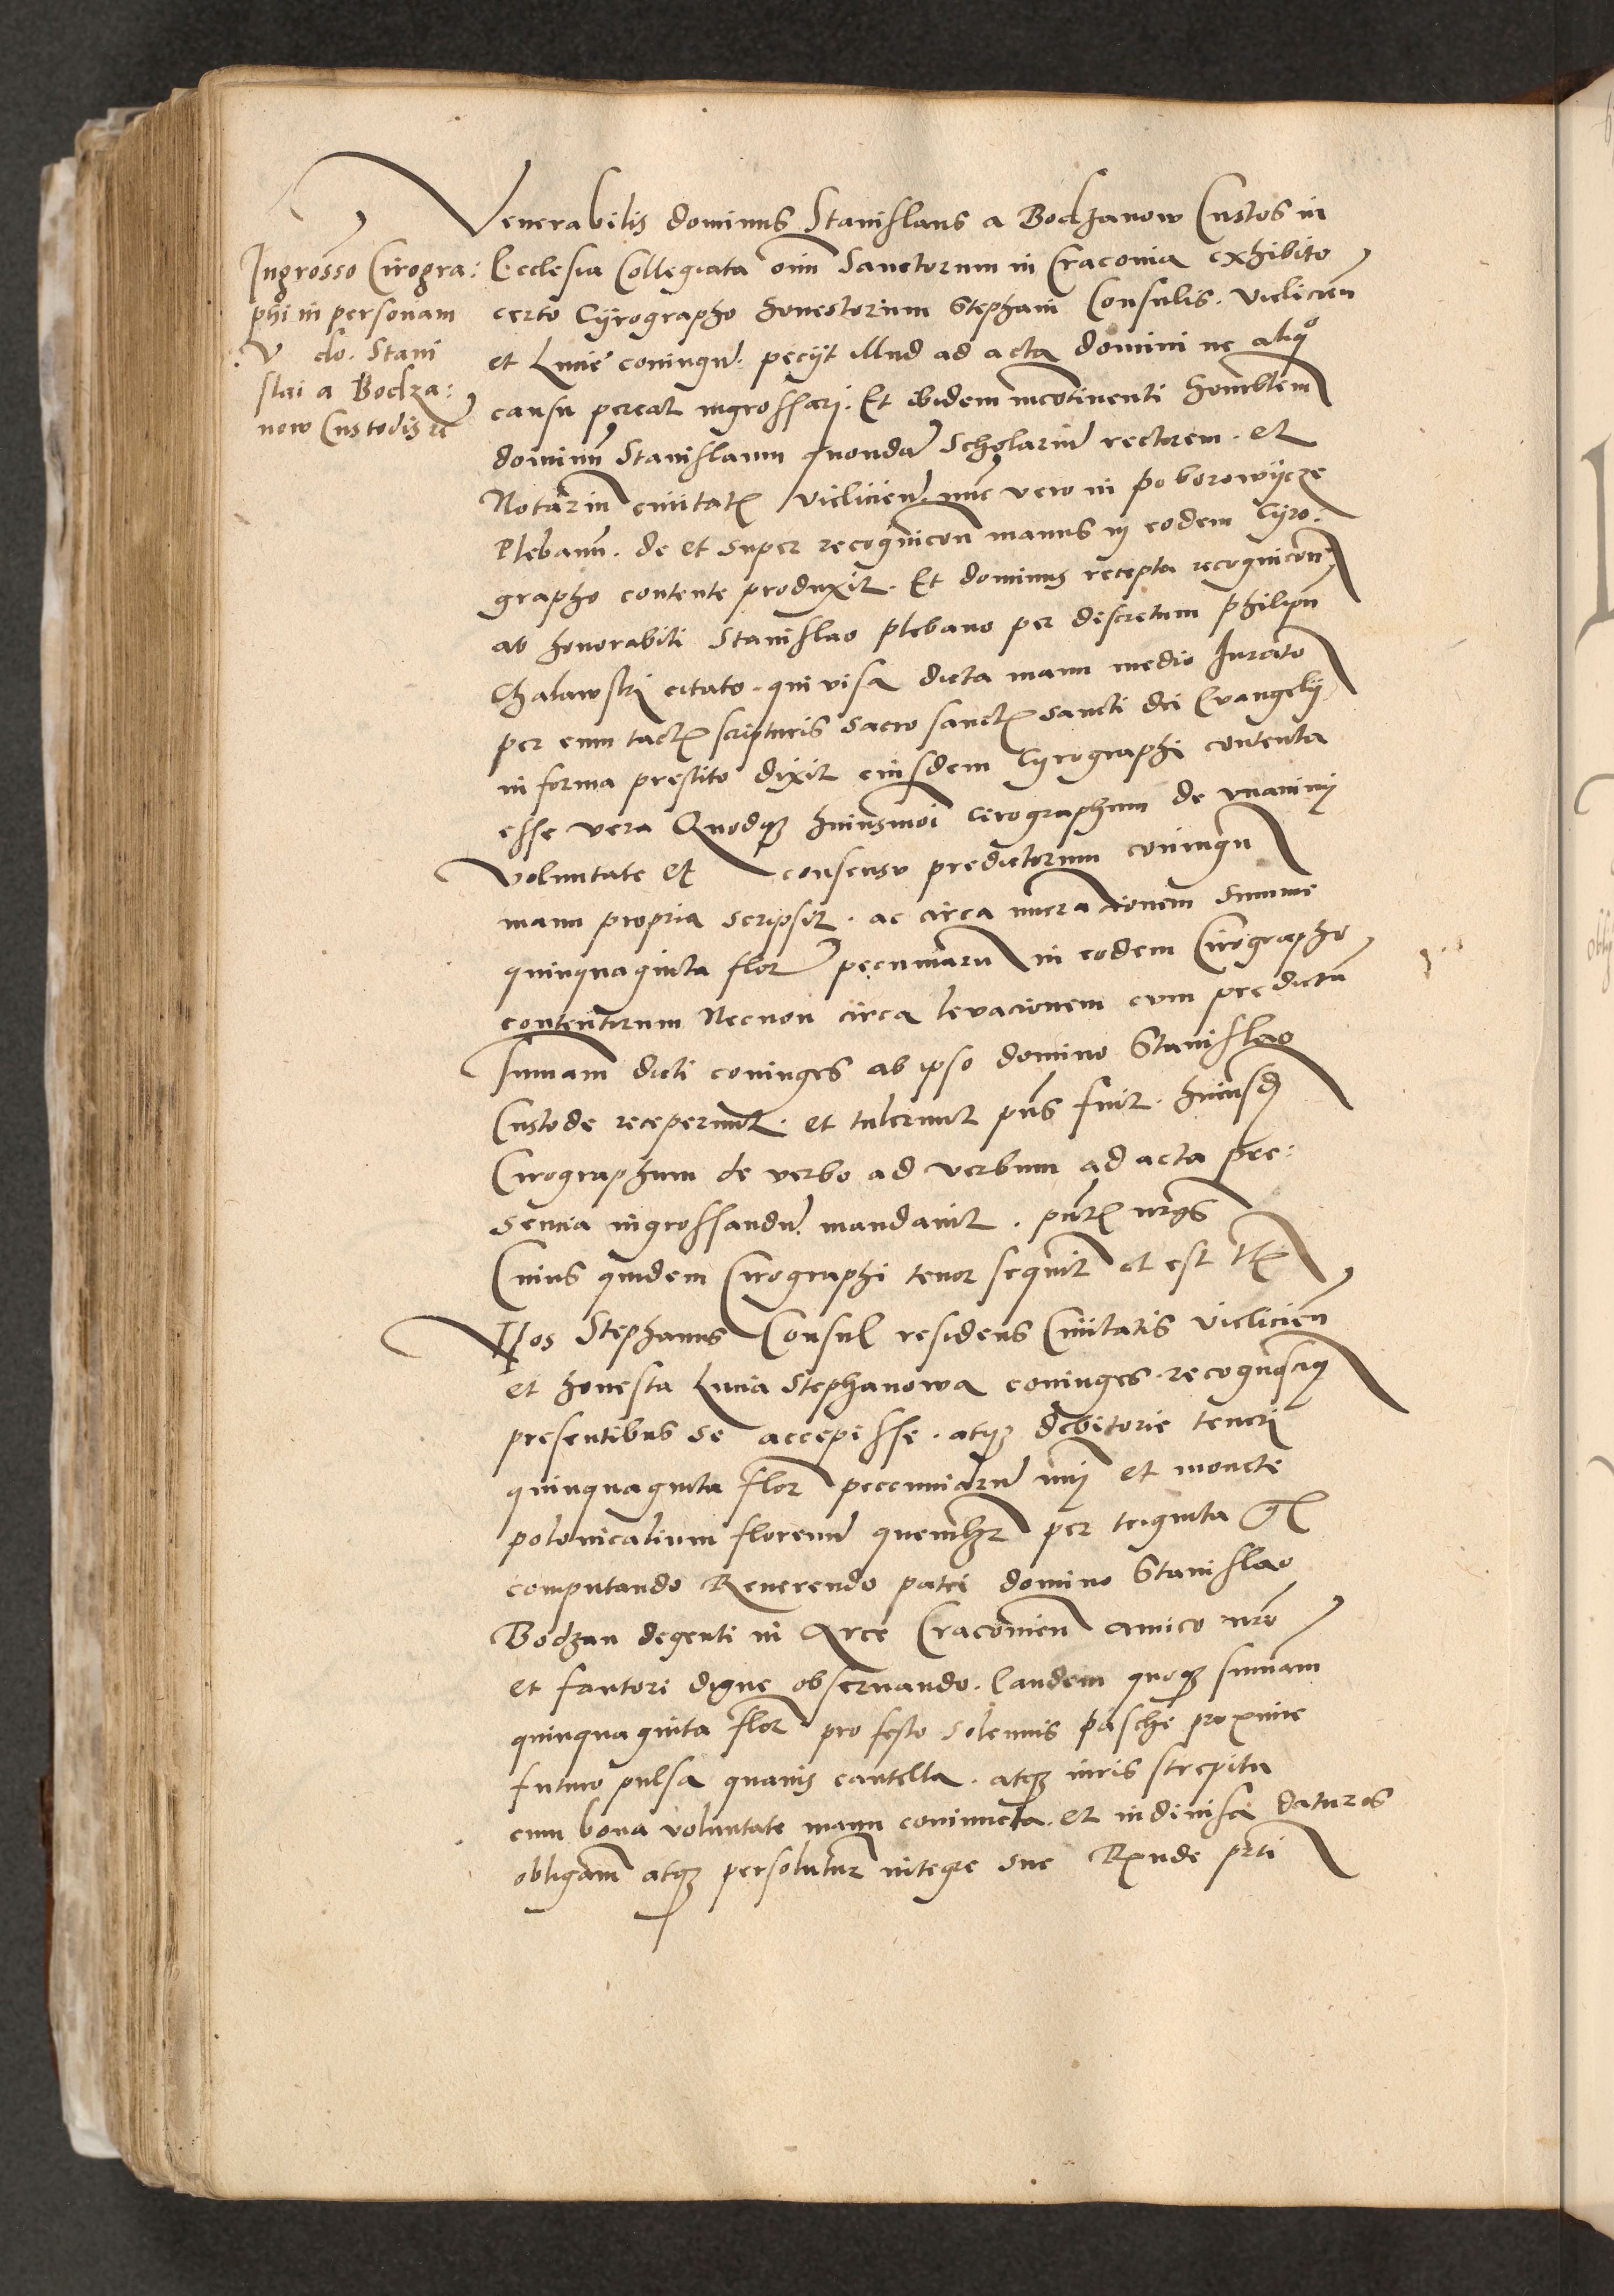 Ingrosso Cirogra:
phi in personam
V do. Stani
slai a Bodza:
now Custodis rc
Venerabilis dominus Stanislaus a Bodzanow Custos in
Ecclesia Collegiata oim Sanctorum in Cracovia exhibito
certo Cyrographo honestorum Stephani Consulis. vieliciēn
et Lucie coniugū. peciit illud ad acta domini ne aliqͦ
causu pereat ingrossari. Et ibidem incōtinenti honorablem
dominū Stanislaum quondā Scholarium rectorem. et
Notariū civitatꝭ vieliciēn. nūc vero in poborowycze
Plebanū. de et super recognicōn manus in eodem Cyro:
grapho contente produxit. Et dominus recepta recognicōn
ab honorabili Stanislao plebano per discretum philipū
Chalawski citato. qui visa dicta manu medio Iurāto
per eum tactꝭ scripturis sacro sanctꝭ sancti dei Evangelij
in forma prestito dixit eiusdem Cyrographi contenta
esse vera Quodqꝫ huiusmōi cirographum de unanimj
voluntate et consensu predictorum coniugū
manu propria scripsit. ac circa nūeracionem summe
quinquaginta flor pecuniarū in eodem Cirographo
contentarum Necnon circa levacionem cum predictā
summam dicti coniuges ab ipso domino Stanislao
Custode receperunt. et tulerunt pn̄s fuit. huiusdj
Cirographum de verbo ad verbum ad acta pre:
sencia ingrossandū. mandavit. pn̄tꝭ
Cuius quidem Cirographi tenor sequit et est tlꝭ
Nos Stephanus Consul residens Civitatis vieliciēn
et honesta Lucia Stephanowa coniuges. recognoscimꝰ
presentibus se accepisse. atqꝫ debitorie teneri
quinquaginta flor peccuniarū nūj et monete
polonicalium florenū quemlꝫ per triginta gꝭ
computando Reverendo patri domino Stanislao
Bodzan degenti in Arce Cracoviēn amico nr̄o
et fautori digne observando. Eandem quoqꝫ sum̄am
quinquaginta flor. pro festo solennis pasche proxime
futuro pulsa quavis cautella. atqꝫ iuris strepitu
cum bona voluntate manu coniuncta. et indivisa daturos
obligam̄ atqꝫ persoluturꝭ integre sue Rx̄nde pr̄ti